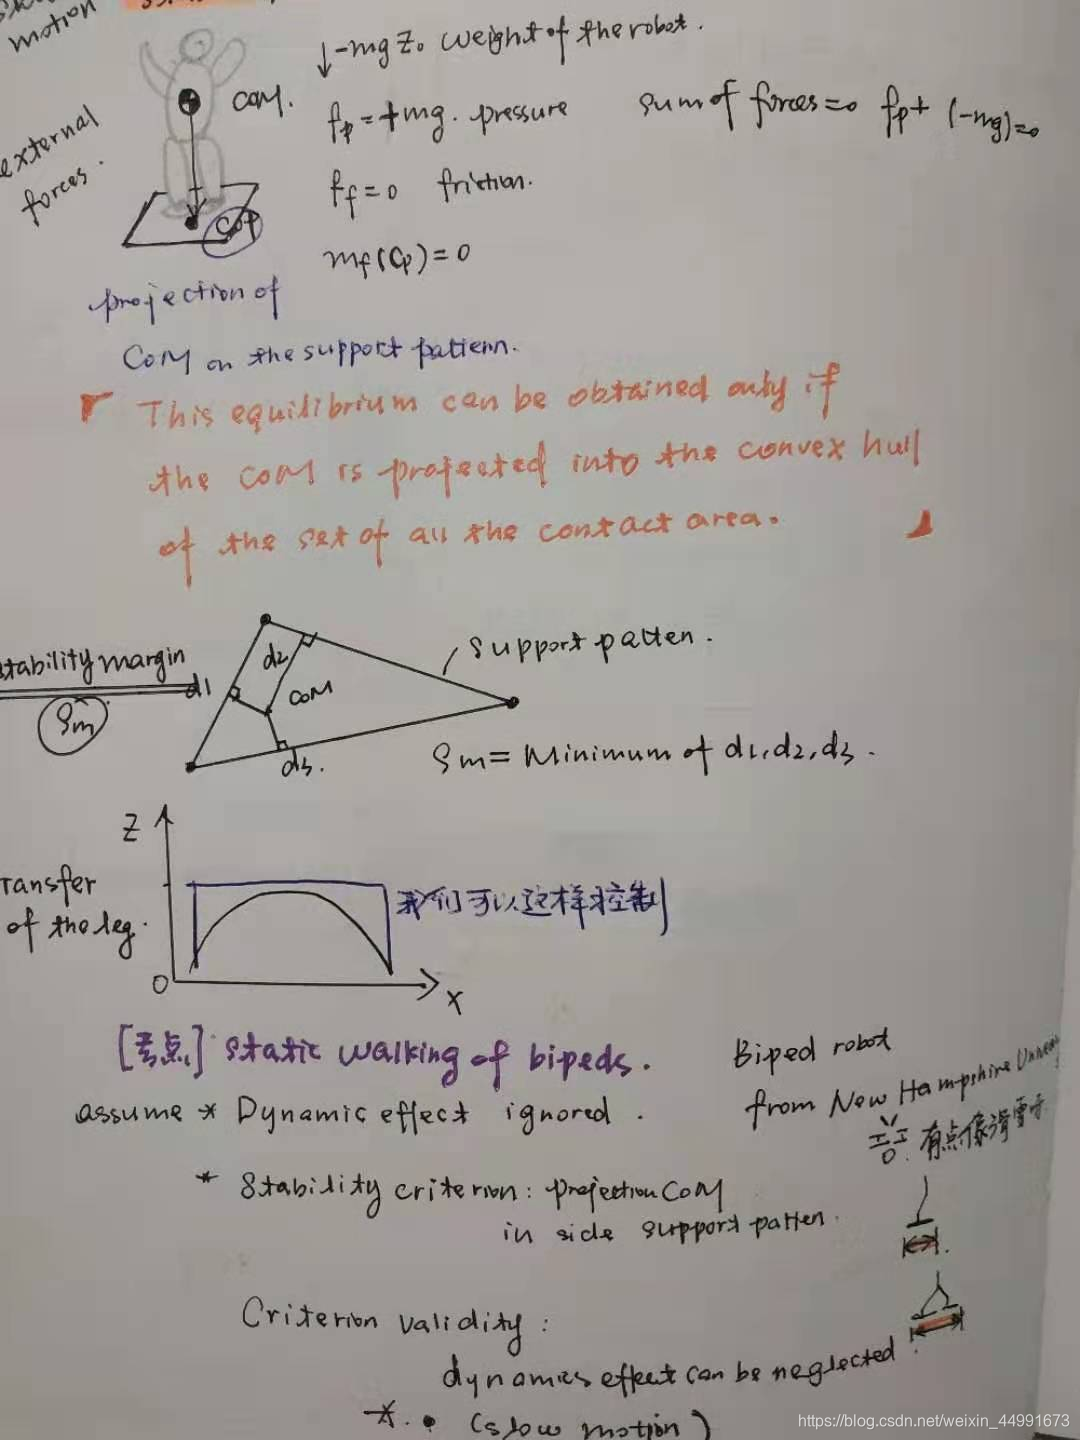 motion
↓ -mg Z₀ weight of the robot.
COM.
external
forces.
fp = +mg. pressure
sum of forces = 0 fp + (-mg) = 0
ff = 0 friction.
CoP
mf(Cp) = 0
projection of
CoM on the support pattern.
「 This equilibrium can be obtained only if
the CoM is projected into the convex hull
of the set of all the contact area. 」
stability margin
Sm
d1
d2
COM
d3.
support patten.
Sm = Minimum of d1, d2, d3.
Z
Transfer
of the leg.
我们可以这样控制
O
X
[考点] static walking of bipeds.
Biped robot
from New Hampshire
assume * Dynamic effect ignored.
有点像滑雪
* Stability criterion: projection CoM
in side support patten.
Criterion validity:
dynamics effect can be neglected.
(slow motion)
https://blog.csdn.net/weixin_44991673